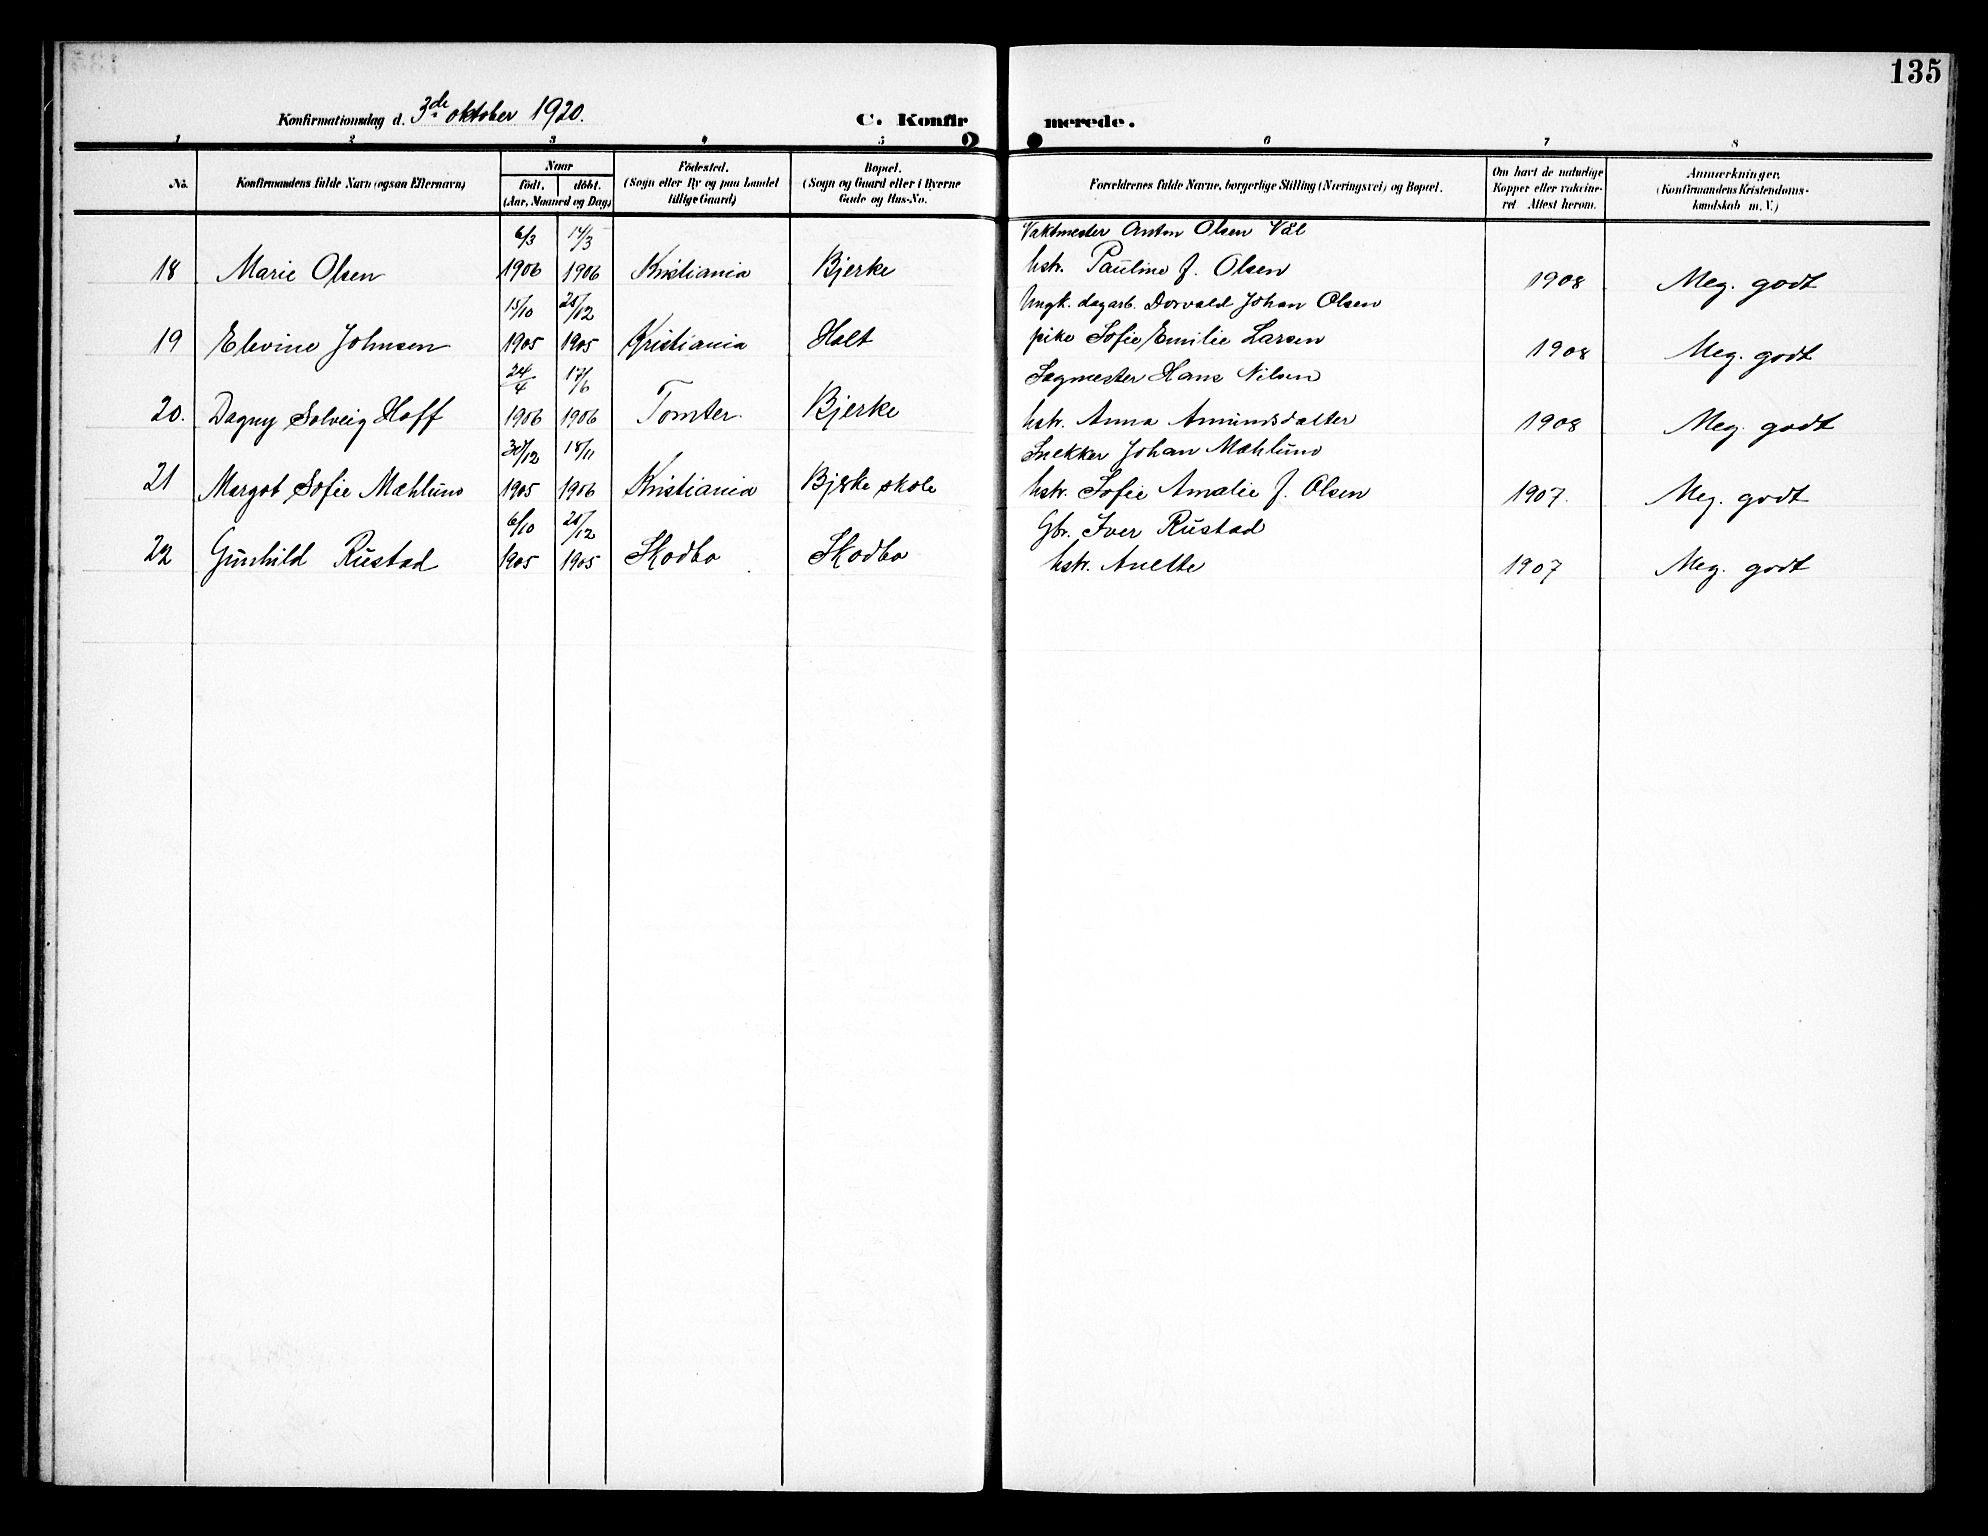 135
Konfirmationsdag d. 3de oktober 1920.
C. Konfirmerede.
1 2 3 4 5 6 7 8
No.
Konfirmandens fulde Navn (ogsaa Efternavn)
Naar
födt. döbt.
(Aar, Maaned og Dag)
Födested.
(Sogn eller By og paa Landet
tillige Gaard)
Bopæl.
(Sogn og Gaard eller i Byerne
Gade og Hus-No.
Forældrenes fulde Navne, borgerlige Stilling (Næringsvei) og Bopæl.
Om havt de naturlige
Kopper eller vakcine-
ret Attest herom.
Anmærkninger.
(Konfirmandens Kristendoms-
kundskab m. V.)
6/3 Vaktmester Anton Olsen
18 Marie Olsen 1906 1906 Kristiania Bjerke hstr. Pauline f. Olsen 1908 Meg. godt
15/10 28/12 Ungk. dagarb. Dorvald Johan Olsen
19 Elevine Johnsen 1905 1905 Kristiania Holt pike Sofie Emilie Larsen 1908 Meg. godt
24/4 17/6 Sagmester Hans Nilsen
20. Dagny Solveig Hoff 1906 1906 Tomter Bjerke hstr. Anna Amundsdatter 1908 Meg. godt
30/12 18/11 Snekker Johan Mæhlund
21 Margot Sofie Mæhlund 1905 1906 Kristiania Bjerke skole hstr. Sofie Amalie f. Olsen 1907. Meg. godt
6/10 28/12 Gbr. Iver Rustad
22 Gunhild Rustad 1905 1905 Skodbo Skodbo hstr. Anette 1907 Meg. godt